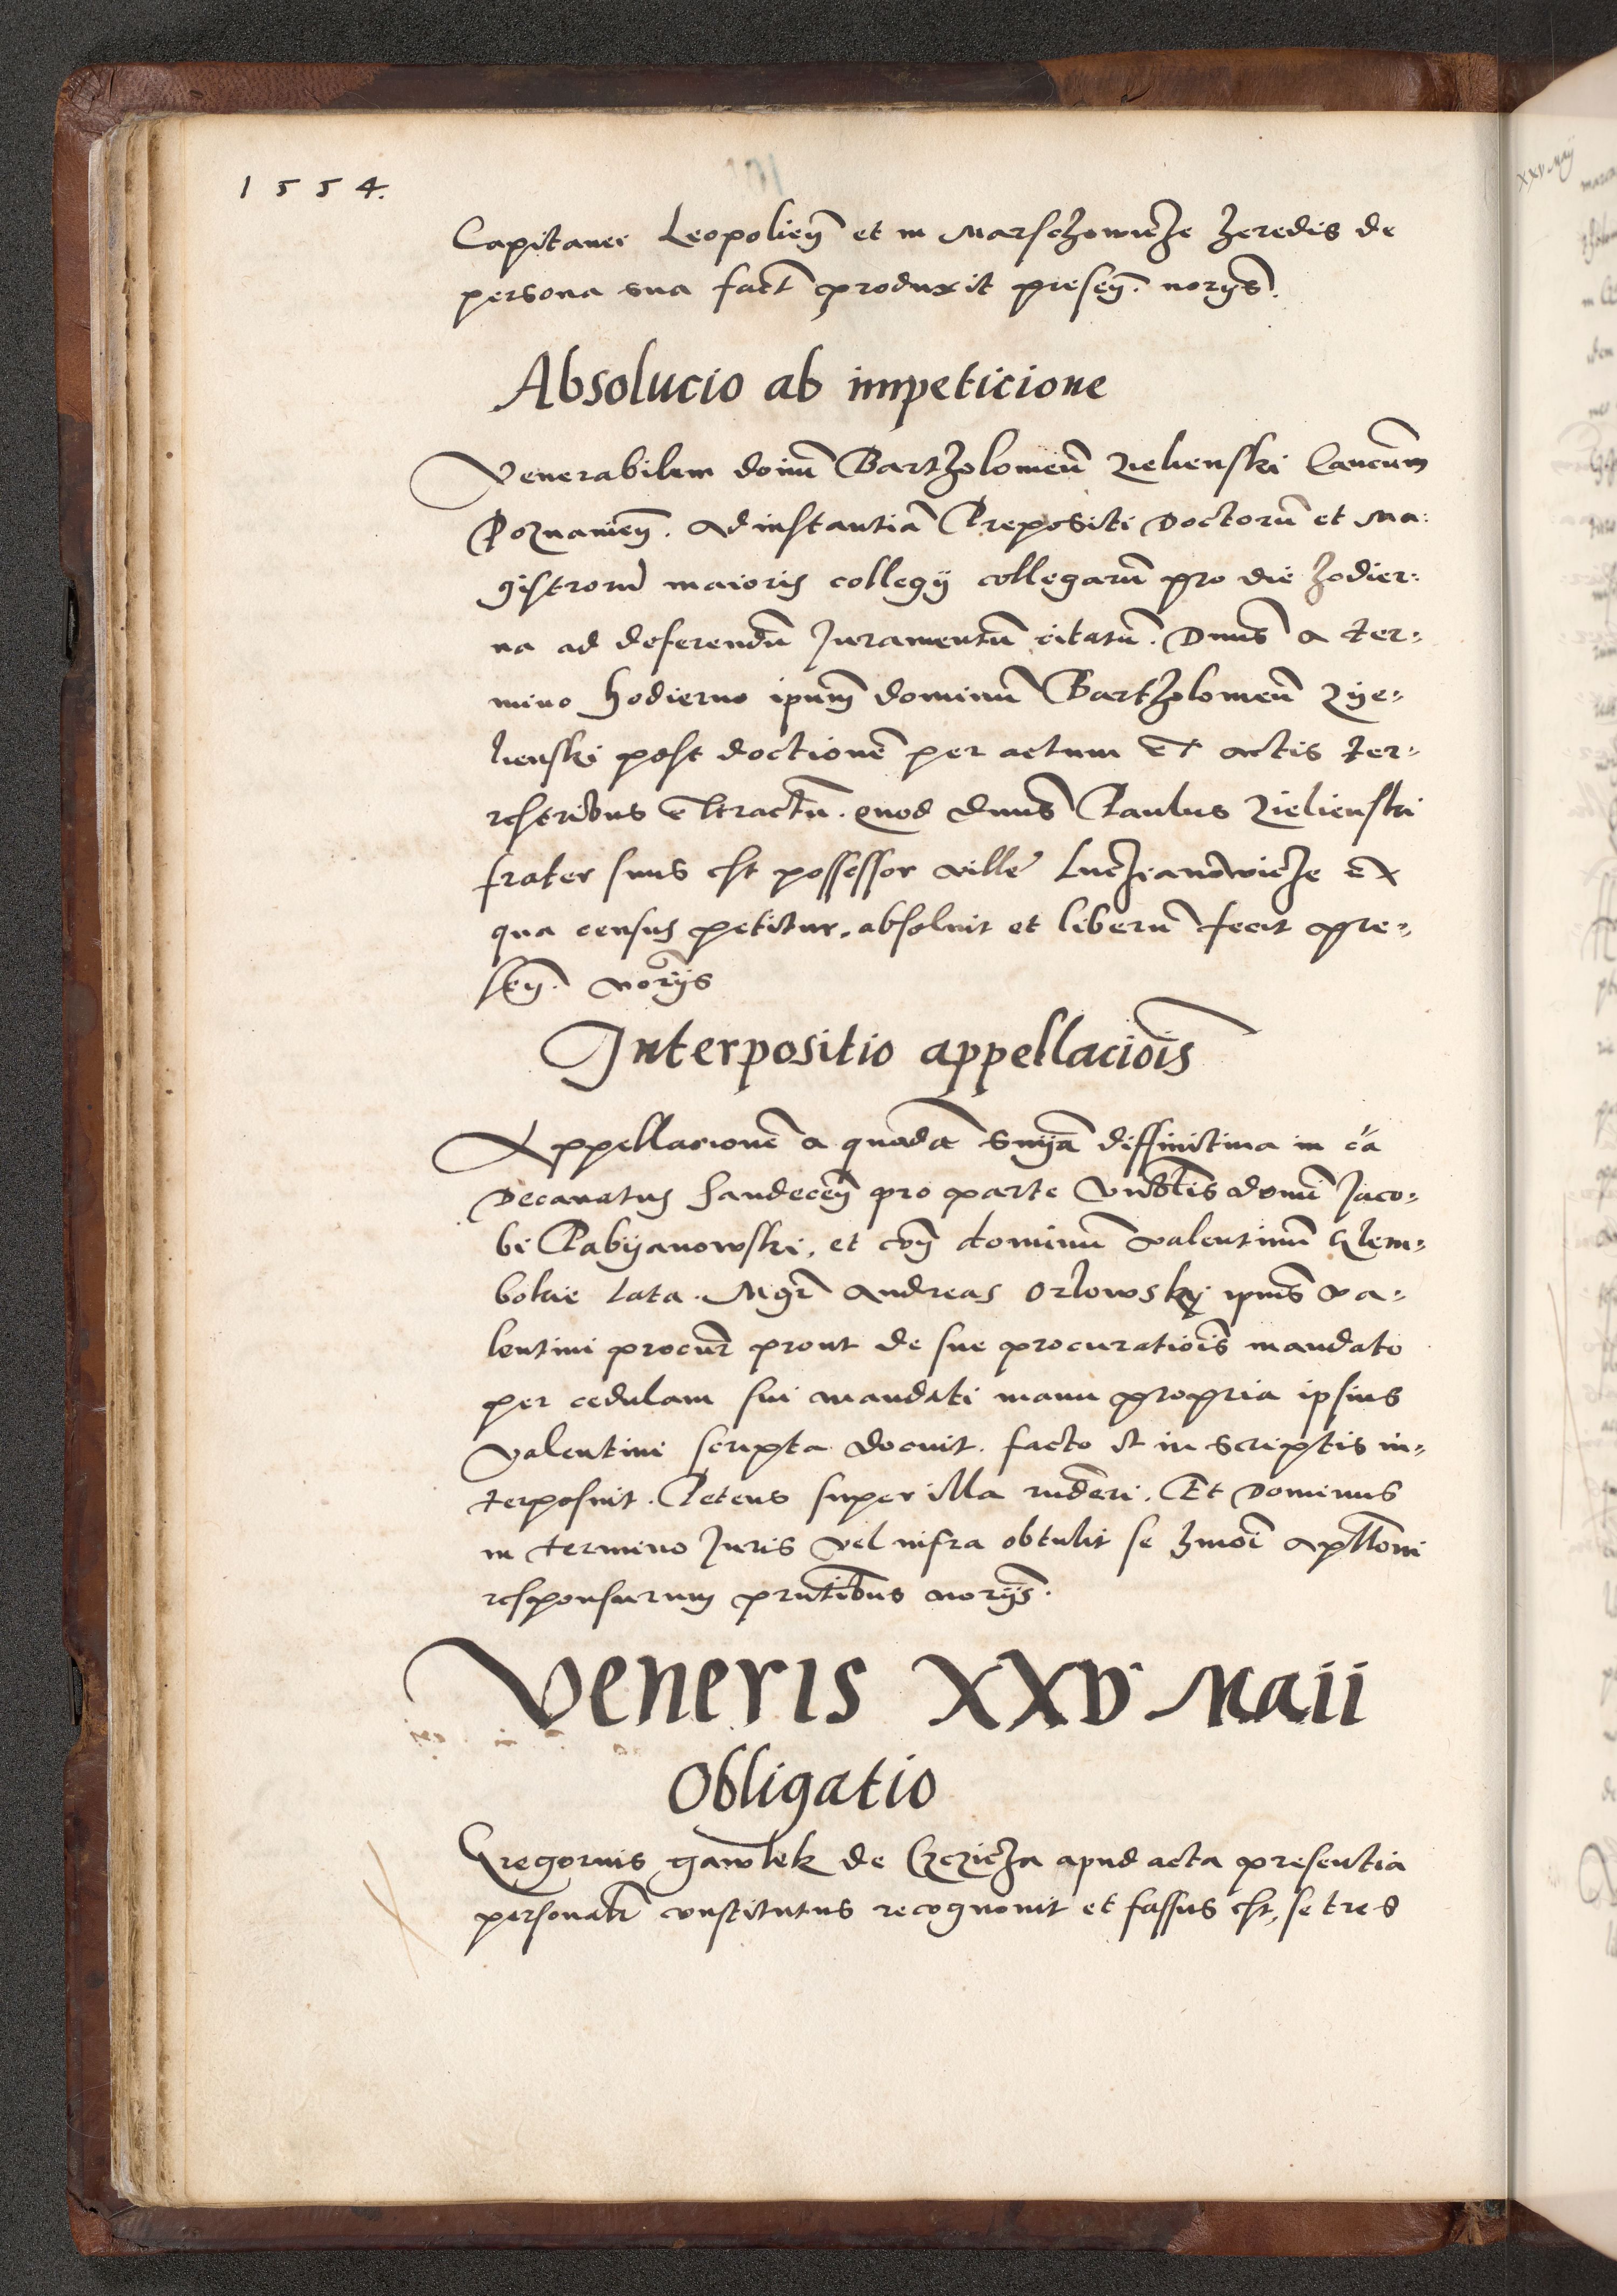 1554.
Capitanei Leopolieñ et in Marschowicze heredis de
persona sua fact̃ produxit preseñ. norijs̃.
Absolucio ab impeticione
Venerabilem domũ Bartholomeũ Zielienski Cancũm
Poznanieñ. Ad instantiã Prepositi Doctorũ et Ma:
gistrorũ maioris collegij collegarũ pro die hodier:
na ad deferendũ Juramentũ citatũ. Dnus̃ a ter:
mino hodierno ipum̃ dominũ Bartholomeũ Zÿe:
lienski post doctionẽ per actum ex actis ter:
restribus extractũ. quod dnus̃ Paulus Zielienski
frater suus est possessor ville Luczianowicze ex
qua census petitur, absoluit et liberũ fecit pre:
señ. norijs
Interpositio appellaciõis
Appellacionẽ a quadã sniã diffinictiua in cã
Decanatus Sandeceñ pro parte vnblis domi Jaco:
bi Pabijanowski, et coñ dominũ Valentinũ Glem:
bokie lata. Mgr̃ Andreas Orlowskij ipius̃ Va:
lentini procur̃ prout de sue procuratiõis mandato
per cedulam sui mandati manu propria ipsius
Valentini scripta docuit. facto et in scriptis in:
terposuit. Petens super illa rñderi. Et Dominus
in termino Juris vel infra obtulit se hmõi apllõni
responsurum prñtibus norijs̃.
Veneris XXV Maii
Obligatio
Gregorius gawlek de Czczicza apud acta presentia
personalr̃ constitutus recognouit et fassus est, se tres